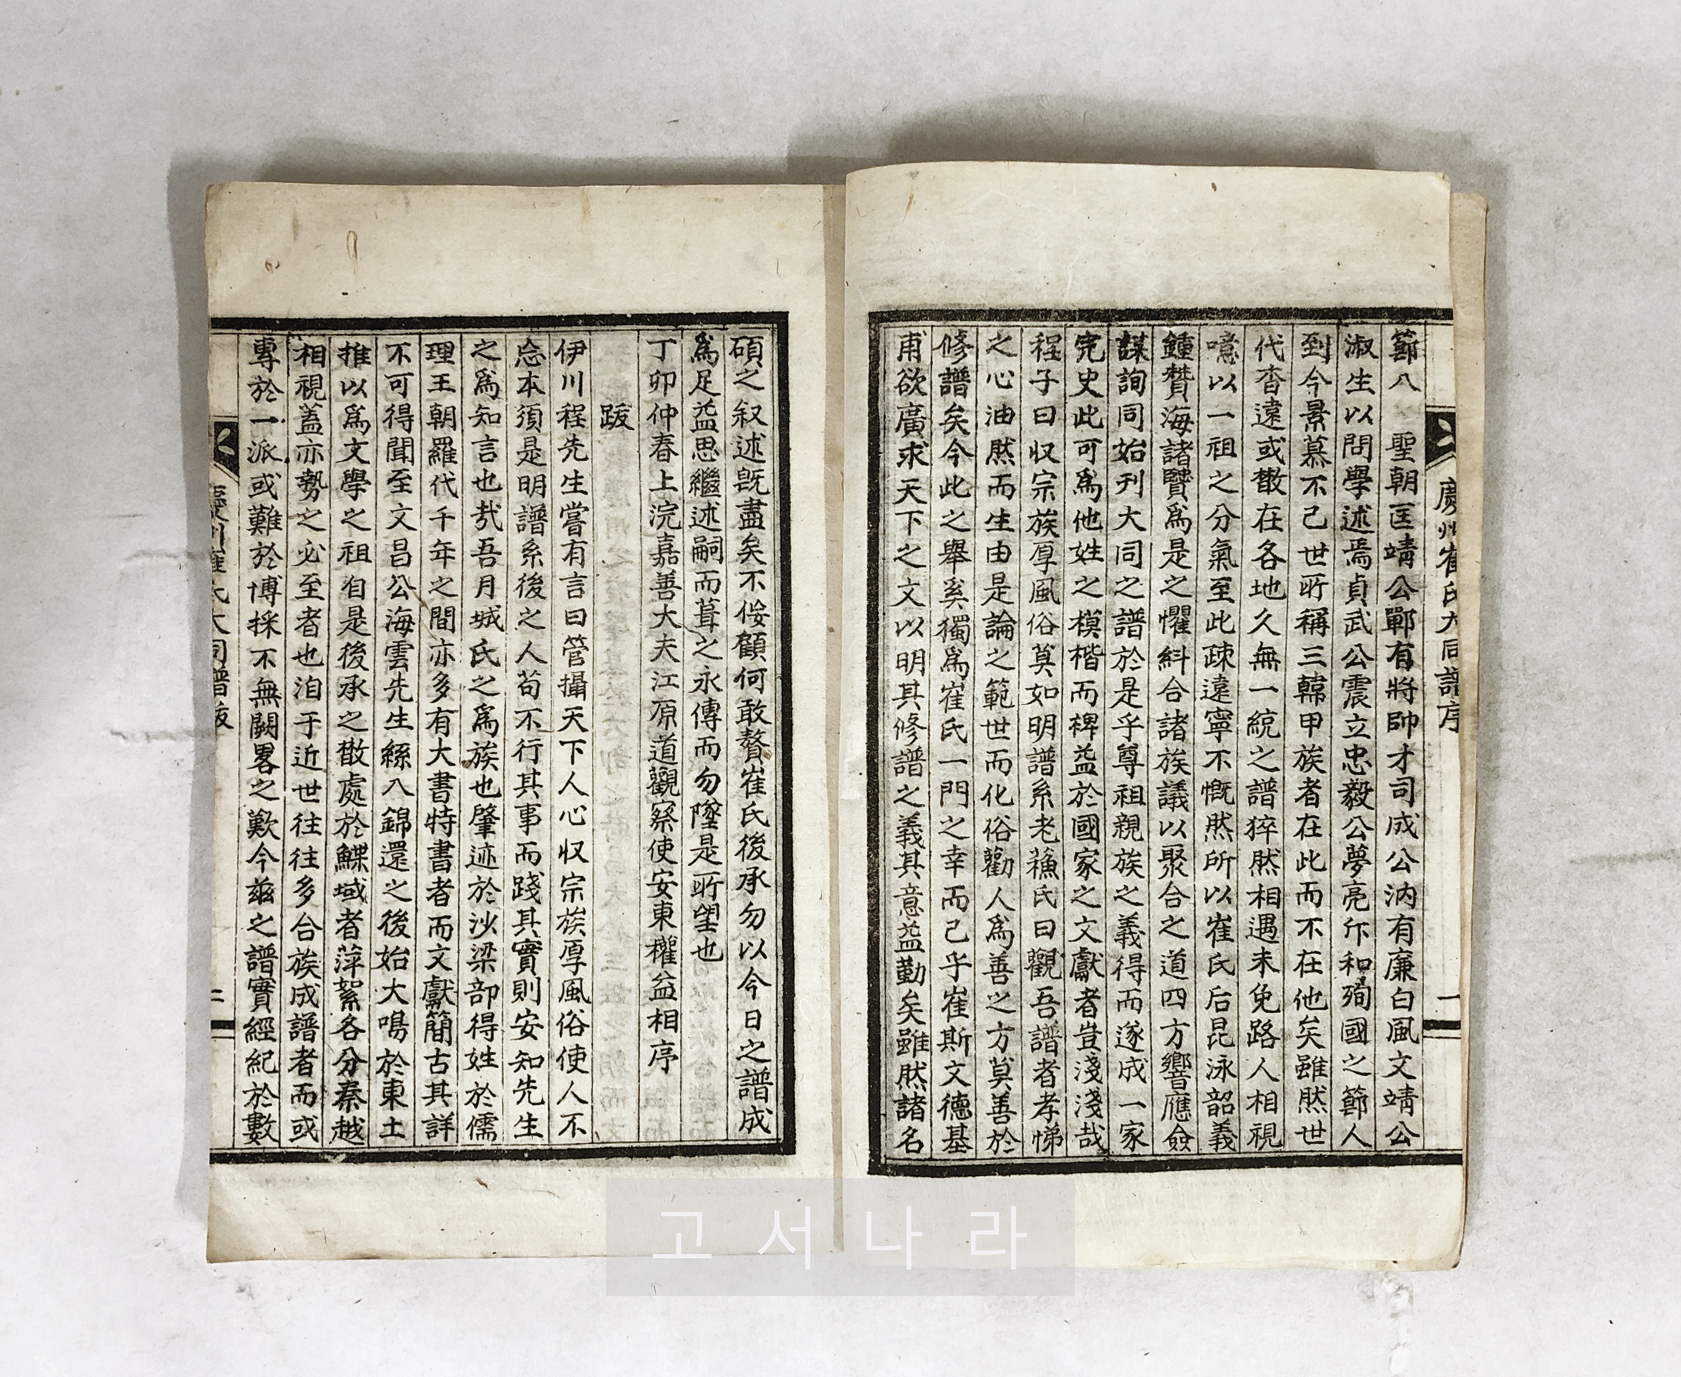 慶州崔氏大同譜序
一
節八 聖朝匡靖公鄲有將帥才司成公汭有廉白風文靖公
淑生以問學述焉貞武公震立忠毅公夢亮斥和殉國之節人
到今景慕不已世所稱三韓甲族者在此而不在他矣雖然世
代杳遠或散在各地久無一統之譜猝然相遇未免路人相視
噫以一祖之分氣至此疎遠寧不慨然所以崔氏后昆泳韶義
鍾賛海諸賢爲是之懼糾合諸族議以聚合之道四方響應僉
謀詢同始刊大同之譜於是乎尊祖親族之義得而遂成一家
完史此可爲他姓之模楷而裨益於國家之文獻者豈淺淺哉
程子曰収宗族厚風俗莫如明譜系老蘓氏曰觀吾譜者孝悌
之心油然而生由是論之範世而化俗勸人爲善之方莫善於
修譜矣今此之舉奚獨爲崔氏一門之幸而已乎崔斯文德基
甫欲廣求天下之文以明其修譜之義其意益勤矣雖然諸名
碩之叙述旣盡矣不佞顧何敢贅崔氏後承勿以今日之譜成
爲足益思繼述嗣而葺之永傳而勿墜是所望也
丁卯仲春上浣嘉善大夫江原道觀察使安東權益相序
跋
伊川程先生嘗有言曰管攝天下人心収宗族厚風俗使人不
忘本須是明譜系後之人苟不行其事而踐其實則安知先生
之爲知言也哉吾月城氏之爲族也肇迹於沙梁部得姓於儒
理王朝羅代千年之間亦多有大書特書者而文獻簡古其詳
不可得聞至文昌公海雲先生絲八錦還之後始大鳴於東土
推以爲文學之祖自是後承之散處於鰈域者萍絮各分秦越
相視盖亦勢之必至者也洎于近世往往多合族成譜者而或
專於一派或難於博採不無闕畧之歎今玆之譜實經紀於數
慶州崔氏大同譜跋
二
고서나라